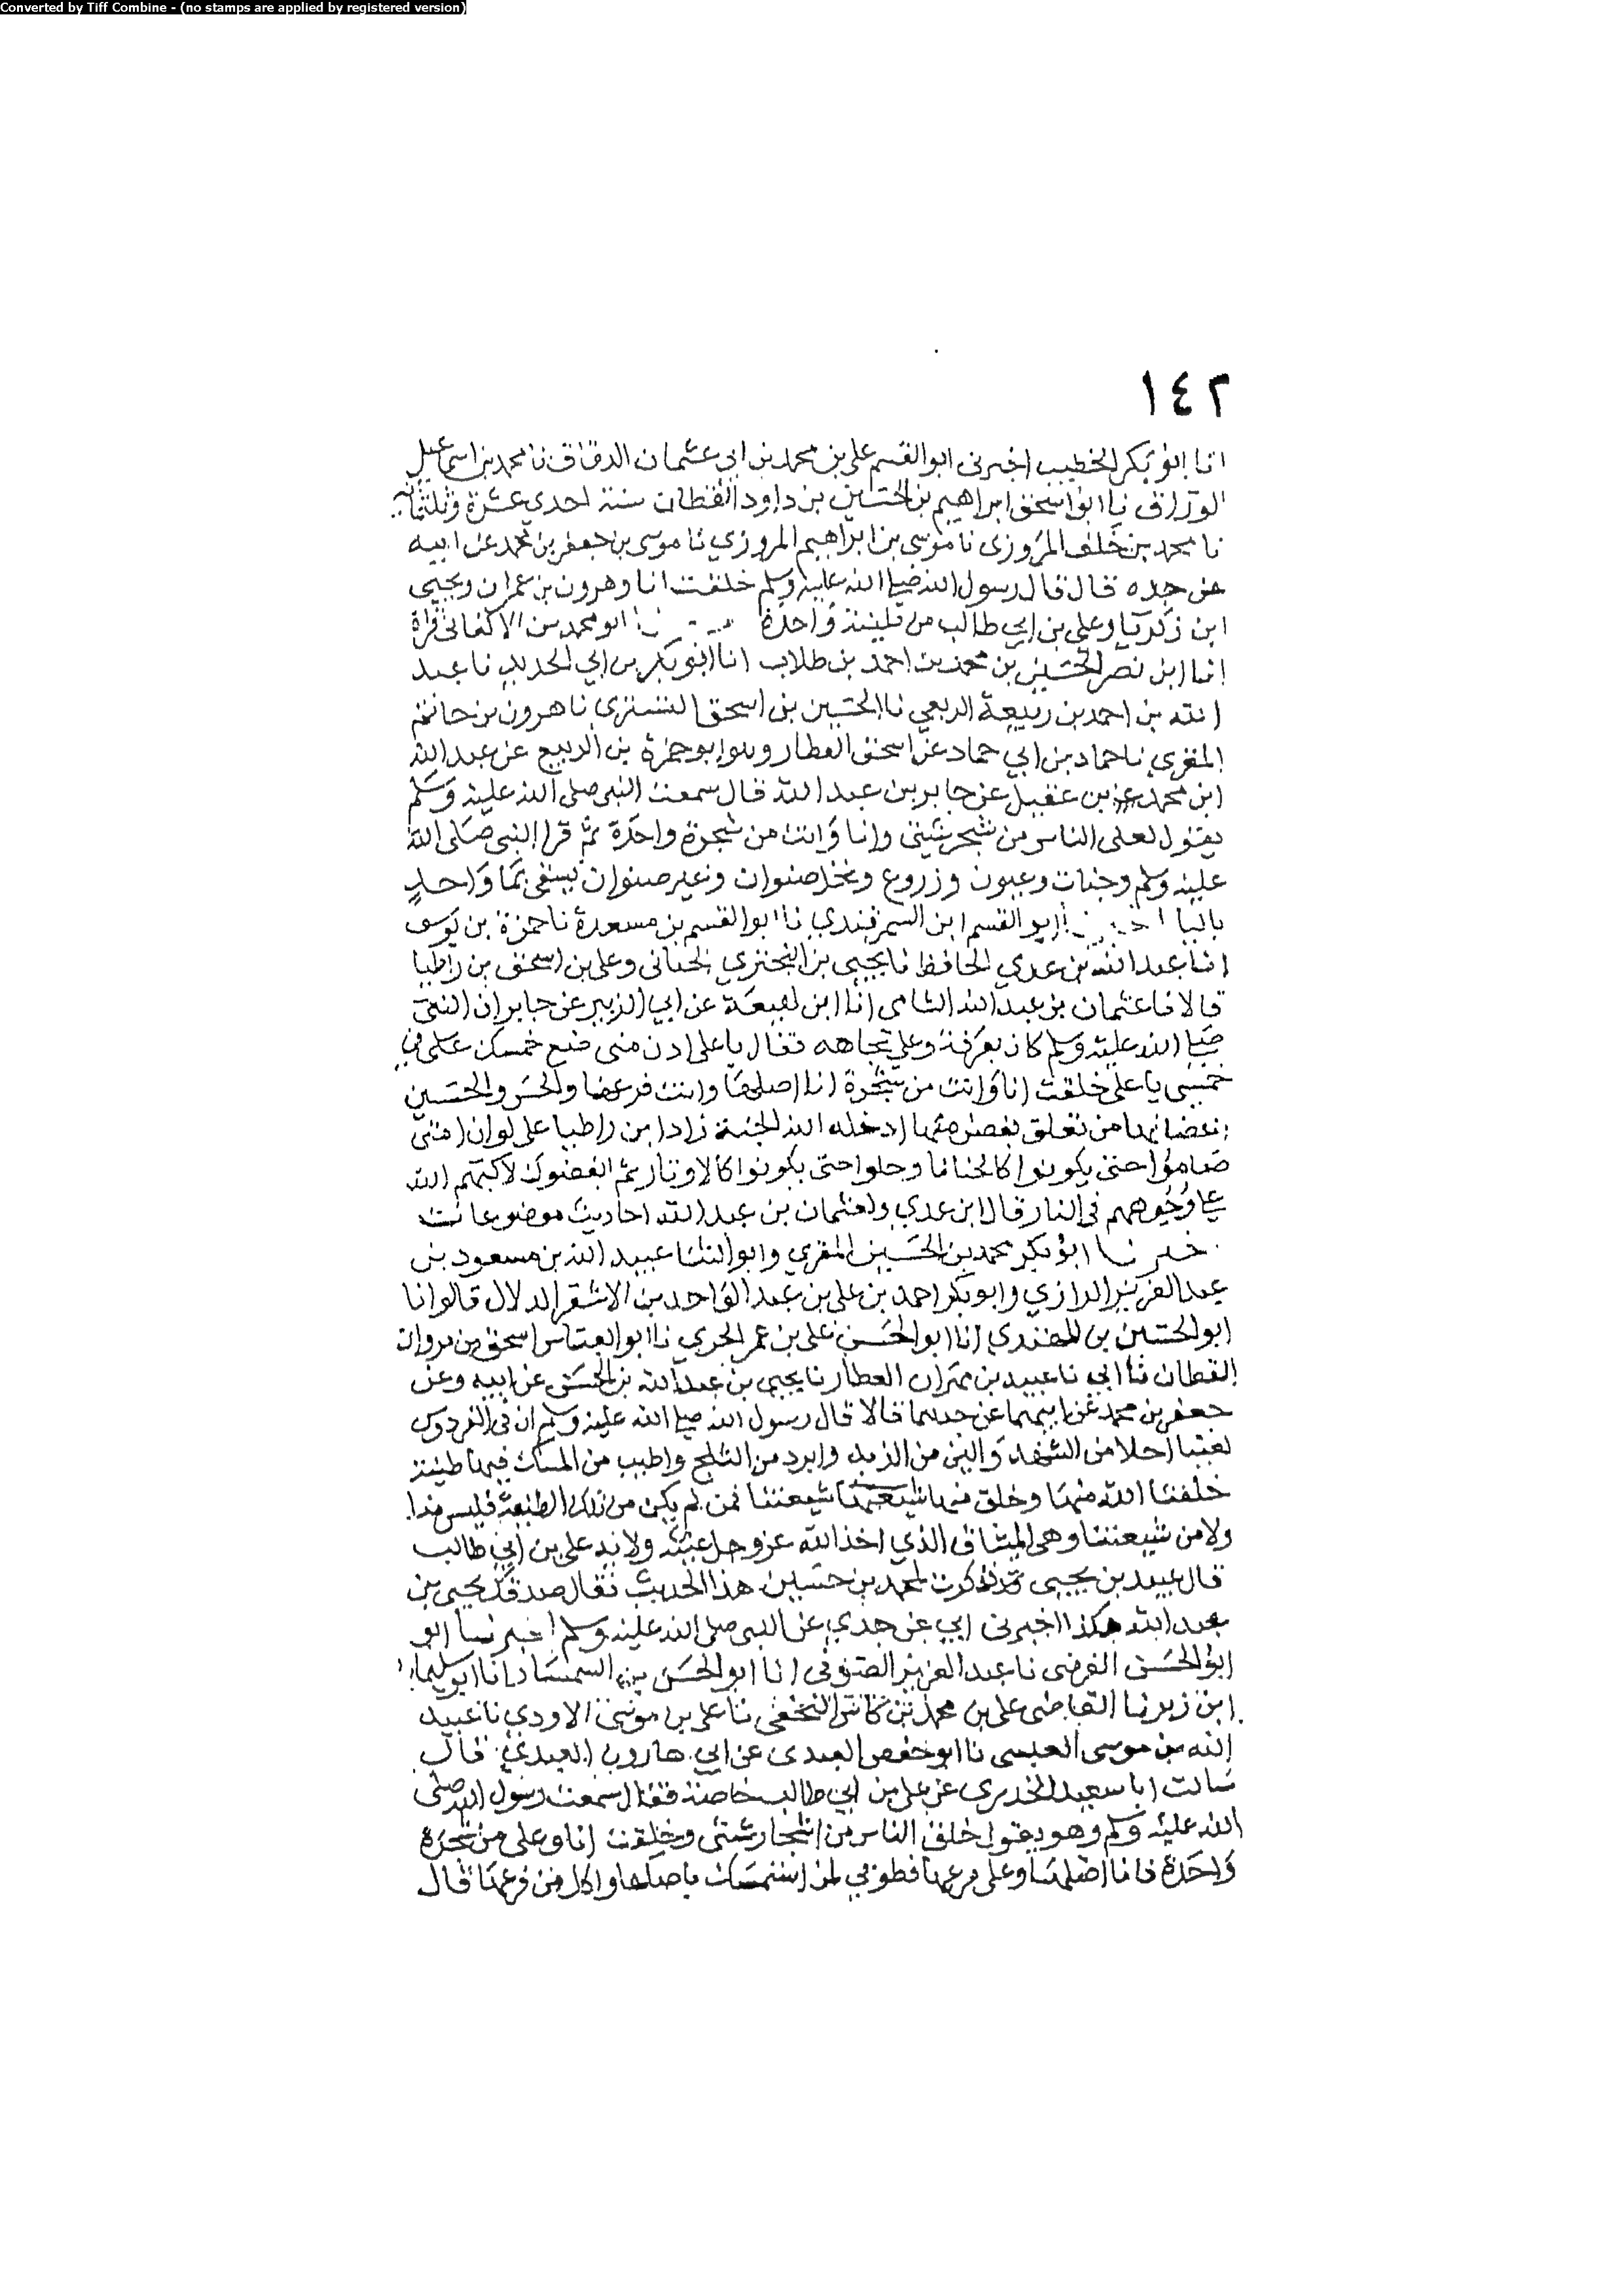 Converted by Tiff Combine - (no stamps are applied by registered version)
١٤٢
انا ابو بكر الخطيب اخبرنى ابو القسم على بن محمد بن ابى عثمان الدقاق نا محمد بن اسماعيل
الوراق نا ابو اسحق ابراهيم بن الحسين بن داود القطان سنة احدى عشرة وثلثمائة
نا محمد بن خلف المروزى نا موسى بن ابراهيم المروزي نا موسى بن جعفر بن محمد عن ابيه
عن جده قال قال رسول الله صلى الله عليه وسلم خلقت انا وهرون بن عمران ويحيى
ابن زكريا وعلى بن ابي طالب من طينة واحدة ابو محمد بن الاكفانى قراة
انا ابن نصر الحسين بن محمد بن احمد بن طلاب انا ابو بكر بن ابي الحديد نا عبد
الله بن احمد بن ربيعة الربعي نا الحسين بن اسحق التسترى نا هرون بن حاتم
المقرى نا حماد بن ابي حماد عن اسحق العطار وهو ابو حمزة بن الربيع عن عبد الله
ابن محمد بن عقيل عن جابر بن عبد الله قال سمعت النبى صلى الله عليه وسلم
يقول لعلى الناس من شجر شتى وانا وانت من شجرة واحدة ثم قرا النبى صلى الله
عليه وسلم وجنات وعيون وزروع ونخل صنوان وغير صنوان يسقى بما واحد
باليا ابو القسم ابن السمرقندي نا ابو القسم بن مسعدة نا حمزة بن يوسف
انا عبد الله بن عدي الحافظ نا يحيى بن البختري الحنانى وعلى بن اسحق بن راطيا
قالا نا عثمان بن عبد الله الشامى انا ابن لهيعة عن ابي الزبير عن جابر ان النبى
صلى الله عليه وسلم كان بعرفة وعلى تجاهه فقال يا على ادن منى ضع خمسك على فى
خمسى يا على خلقت انا وانت من شجرة انا اصلها وانت فرعها والحسن والحسين
اغصانها من تعلق بغصن منها ادخله الله الجنة زاد ابن راطيا على لو ان امتى
صاموا حتى يكونوا كالحنايا وصلوا حتى يكونوا كالاوتار ثم ابغضوك لاكبهم الله
على وجوههم فى النار قال ابن عدي ولعثمان بن عبد الله احاديث موضوعات
خبرنا ابو بكر محمد بن الحسين المقري وابو الثنا عبيد الله بن مسعود بن
عبد العزيز الرازي وابو بكر احمد بن على بن عبد الواحد بن الاشقر الدلال قالوا نا
ابو الحسين بن المهتدي انا ابو الحسن على بن عمر الحربي نا ابو العباس اسحق بن مروان
القطان نا ابي نا عبيد بن مهران العطار نا يحيى بن عبد الله بن الحسن عن ابيه وعن
جعفر بن محمد عن ابيهما عن جدهما قالا قال رسول الله صلى الله عليه وسلم ان فى الفردوس
لعينا احلا من الشهد والين من الزبد وابرد من الثلج واطيب من المسك فيها طينة
خلقنا الله منها وخلق منها شيعتنا فمن لم يكن من تلك الطينة فليس منا
ولا من شيعتنا وهى الميثاق الذي اخذ الله عز وجل عليه ولاية على بن ابي طالب
قال عبيد بن يحيى ذكرت لمحمد بن حسين هذا الحديث فقال صدقك يحيى بن
عبد الله هكذا اخبرنى ابي عن جدي عن النبى صلى الله عليه وسلم اخبرنا ابو
ابو الحسن الفرضى نا عبد العزيز الصوفى انا ابو الحسن بن السمسار انا ابو سليمان
ابن زبر نا القاضى على بن محمد بن كاس النخعى نا على بن موسى الاودي نا عبيد
الله بن موسى العبسى نا ابو حفص العبدى عن ابي هارون العبدي قال
سالت ابا سعيد الخدرى عن على بن ابي طالب خاصة فقال سمعت رسول الله صلى
الله عليه وسلم وهو يقول خلق الناس من اشجار شتى وخلقت انا وعلى من شجرة
واحدة فانا اصلها وعلى فرعها فطوبي لمن استمسك باصلها واكل من فرعها قال